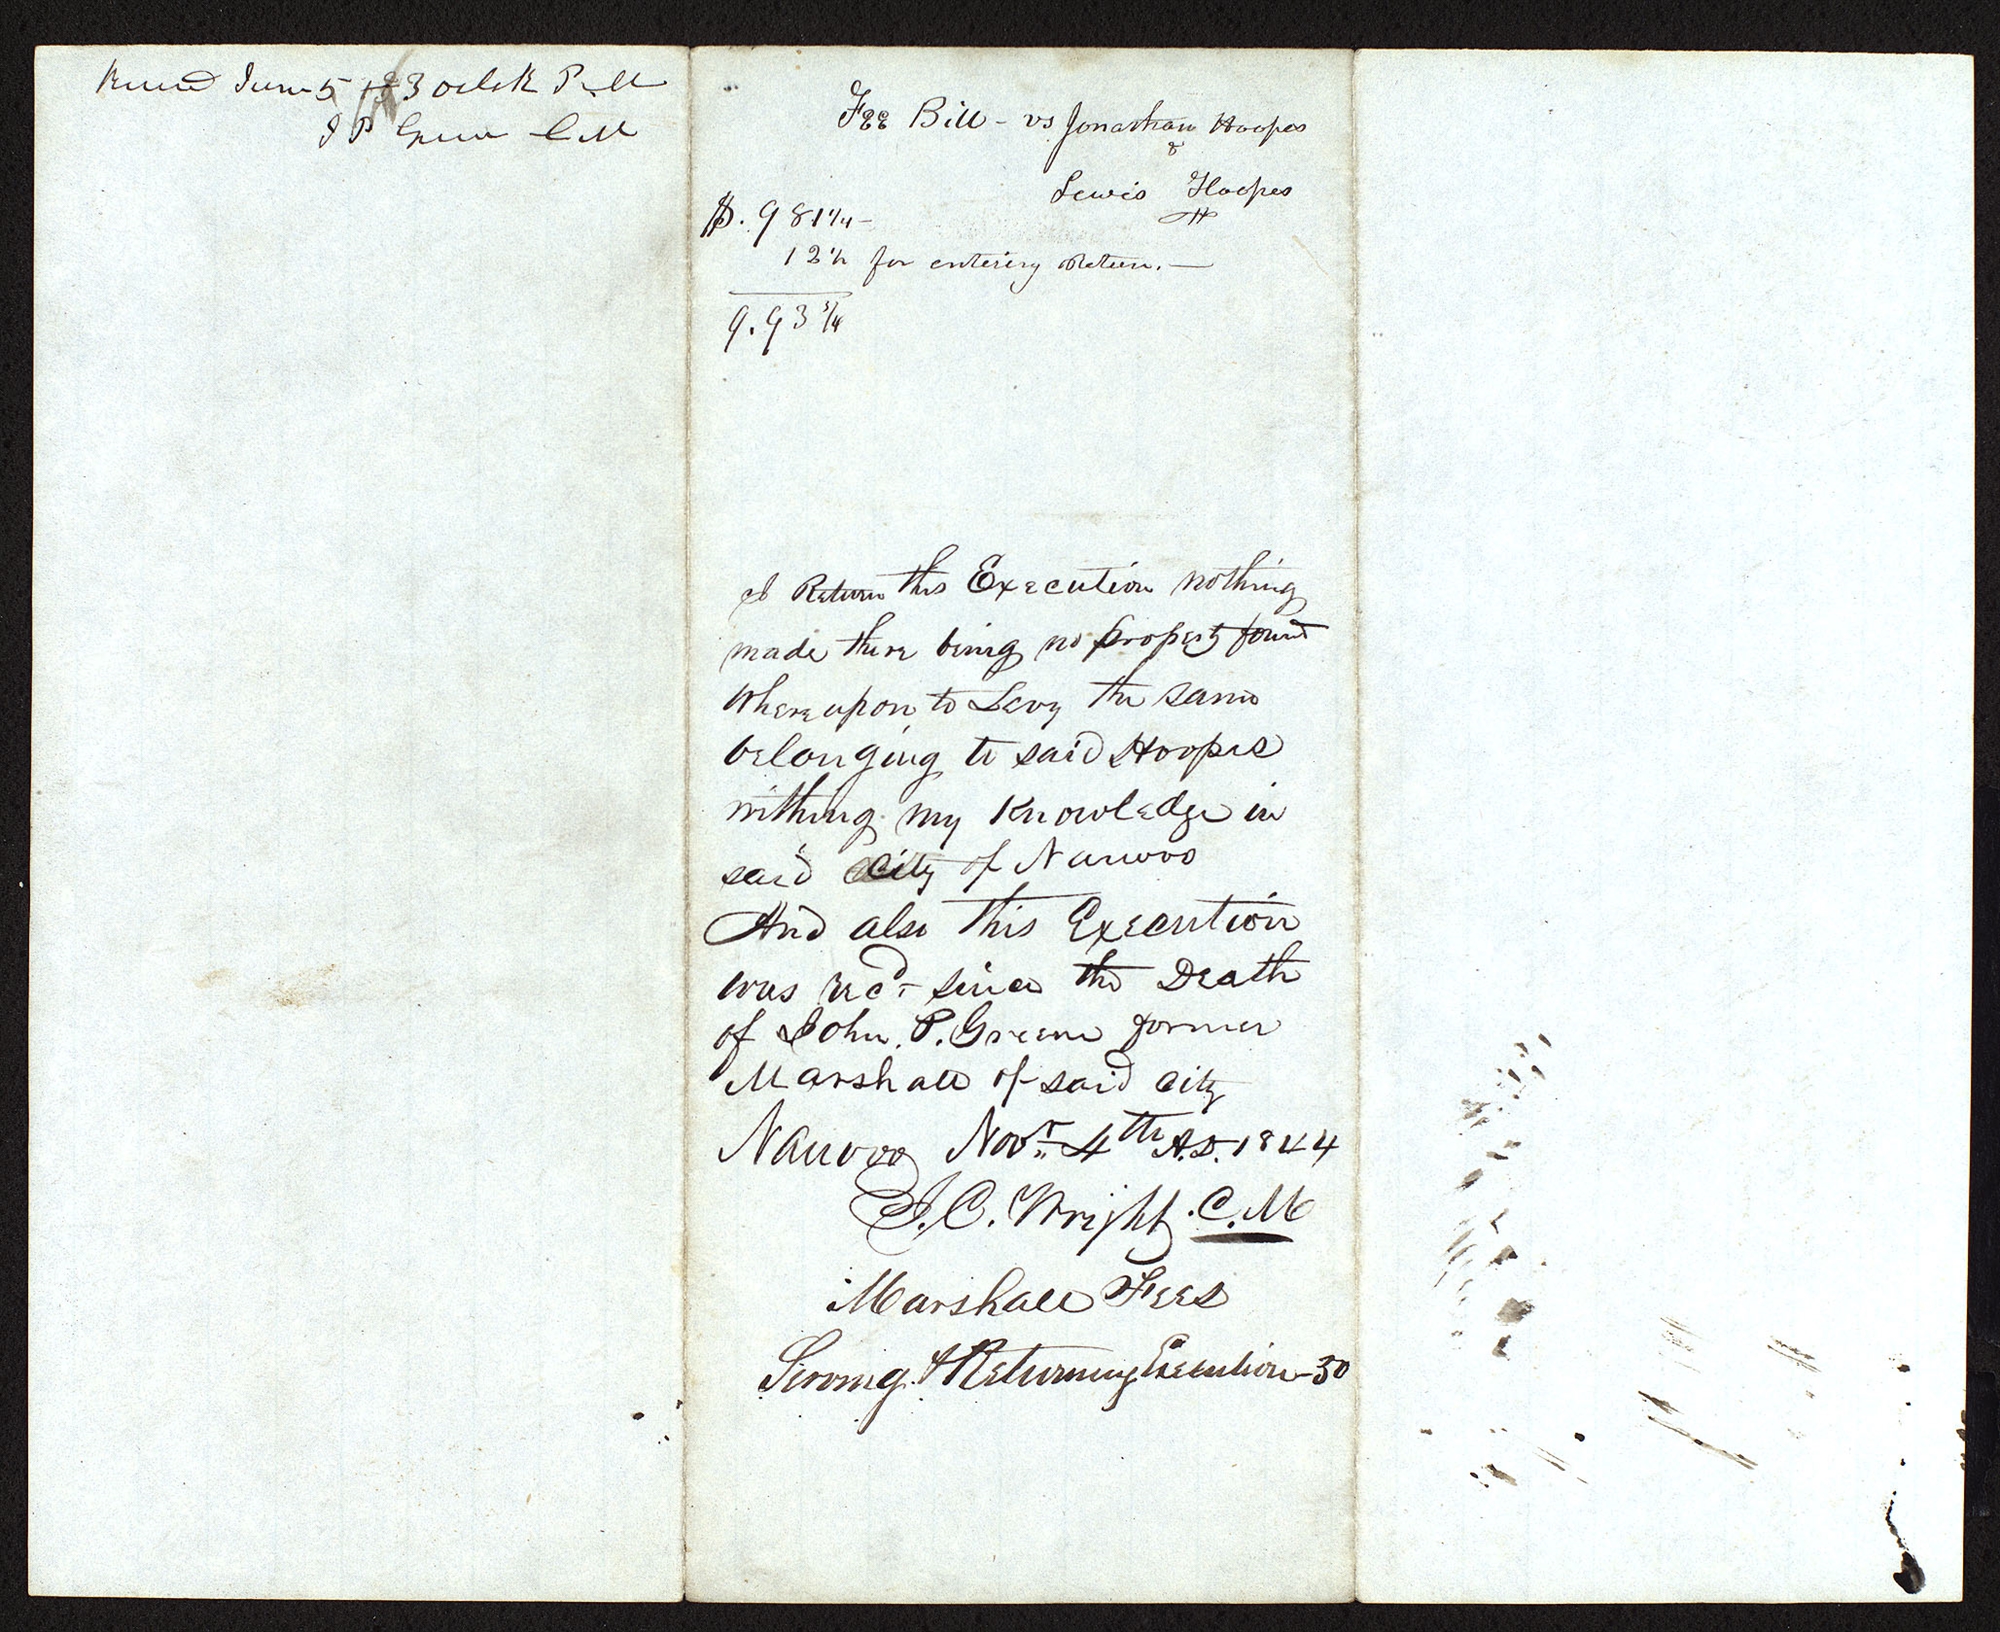 Recived June 5 3 oclok P M
J P Green C M
Fee Bill - vs Jonathan Hoopes
&
Lewis Hoopes
$. 9 81 1/4 -
12 1/2 for entering Return. —
9.93 3/4
I Return this Execution nothing
made there being no property found
Whereupon to Levy the same
belonging to said Hoopes
withing my Knowledge in
said City of Nauvoo
And also this Execution
was recd- since the Death
of John. P. Greene former
Marshall of said City
Nauvoo Novr. 4th A.D. 1844
J. C. Wright. C. M
Marshall Fees
Serving. & Returning Execution - 50